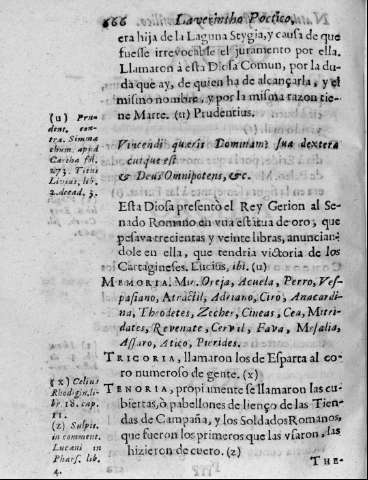 666 Laverintho Poetico,
era hija de la Laguna Stygia, y causa de que
fuesse irrevocable el juramento por ella.
Llamaron à esta Diosa Comun, por la du-
da que ay, de quien ha de alcançarla, y el
mismo nombre, y por la misma razon tie-
ne Marte. (u) Prudentius.
(u) Pru
dent. con-
tra. Simma
chum. apud
Cartha fol.
273. Titus
Livius, lib.
2. decad. 3.
Vincendi quæris Dominam? sua dextera
cuique est
& Deus Omnipotens, &c.
Esta Diosa presentò el Rey Gerion al Se-
nado Romano en vua estatua de oro; que
pesava trecientas y veinte libras, anuncian-
dole en ella, que tendria victoria de los
Cartagineses. Lucius, ibi. (u)
MEMORIA. Mir. Oreja, Acuela, Perro, Ves-
pasiano, Atractil, Adriano, Ciro, Anacardi-
na, Theodetes, Zecher, Cineas, Cea, Mitri-
dates, Revenate, Cervil, Fava, Mesalia,
Assaro, Atico, Pierides.
TRICORIA, llamaron los de Esparta al co-
ro numeroso de gente. (x)
(x) Celius
Rhodigin. li-
br. 18. cap.
11.
(z) Sulpit.
in comment.
Lucani in
Phars. lib.
4.
TENORIA, propiamente se llamaron las cu-
biertas, ò pabellones de lienço de las Tien-
das de Campaña, y los Soldados Romanos,
que fueron los primeros que las vsaron, las
hizieron de cuero. (z)
THE-